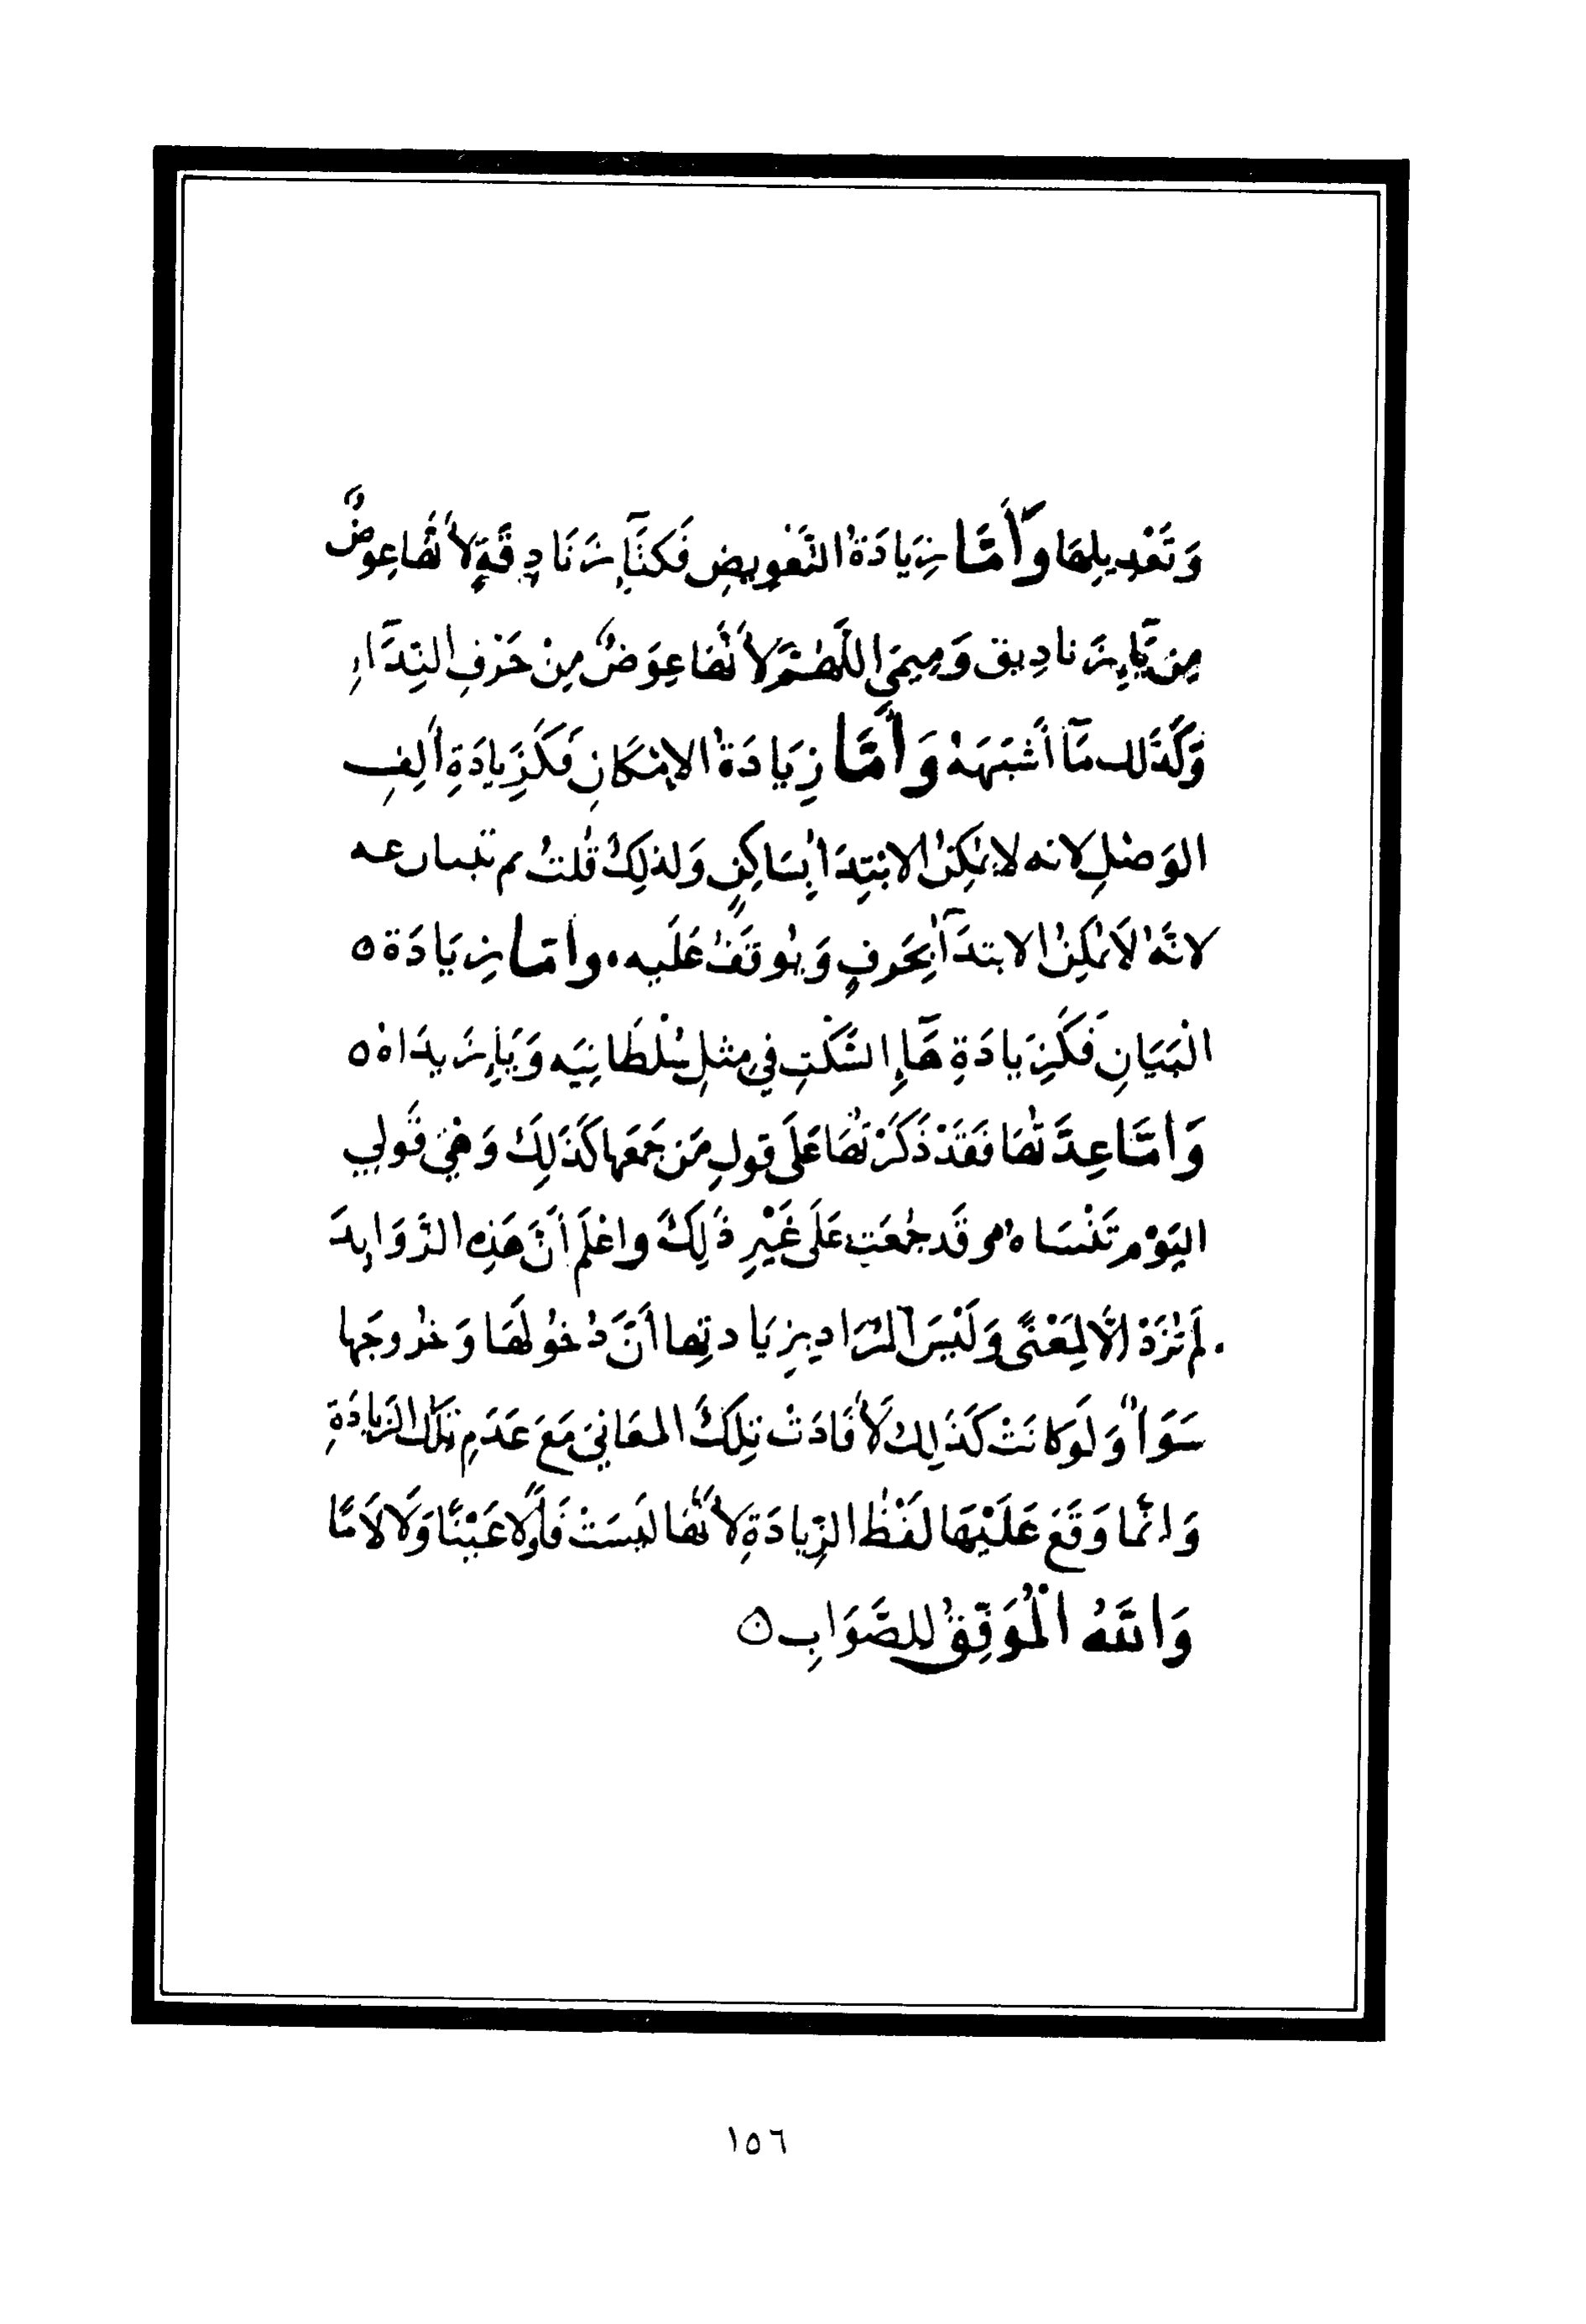 وَتَعْدِيلِهَا وَأَمَّا زِيَادَةُ التَّعْوِيضِ فَكَتَآءِ زَنَادِقَةٍ لأنَّهَا عِوَضٌ
مِن يَآءِ زَنَادِيق وَمِيمَيِ اللَّهُمَّ لأنَّهَا عِوَضٌ مِنْ حَرْفِ النِدَّآءِ
وَكَذَلك مَآ أَشْبَهَهُ وَأَمَّا زِيَادَةُ الإمْكَانِ فَكَزِيَادَةِ ألِفِ
الوَصْلِ لانه لايمْكِنُ الابْتِدَا بِسَاكِنٍ وَلذلِكَ قُلتُ
لانَّهُ لاَيمْكِنُ الابتدَآ بِحَرفٍ وَيُوقَفُ عَلَيه وامَّا زِيَادَة ٥
البَيَانِ فَكَزِيَادَةِ هَآءِ السَّكْتِ فِي مِثلِ سُلْطَانِيَه وَيَاءِ زَيدَاه ٥
وَامَّا عِدَّتُهَا فَقَدْ ذَكَرْتُهَا عَلَى قولِ مَن جَمَعَها كَذَلِكَ وَهْيَ قَولِي
اليَوْم تَنْسَاهُ وقَد جُمعَت عَلَى غَيْرِ ذَلِكَ واعْلَم أَنَّ هَذِهِ الزَّوَايِدَ
لَم تُزَدْ الَّا لِمَعْنًى وَلَيْسَ المُرَاد بِزِيَادتِها أَنَّ دُخُولَهَا وَخرُوجَها
سَوَآءٌ وَلَو كَانَتْ كَذَلِكَ لأفَادَتْ تِلكَ المعَانِيَ مَعَ عَدَمِ تِلْكَ الزيَادَةِ
وَانَّما وَقَعَ عَلَيْهَا لَفْظُ الزِيادَةِ لأنَّهَا لَيسَتْ فَآءً وَلا عَيْنًا وَلَا لاَمًا
وَاللَّهُ الْمُوَفِّقُ للصَّوَابِ ٥
١٥٦